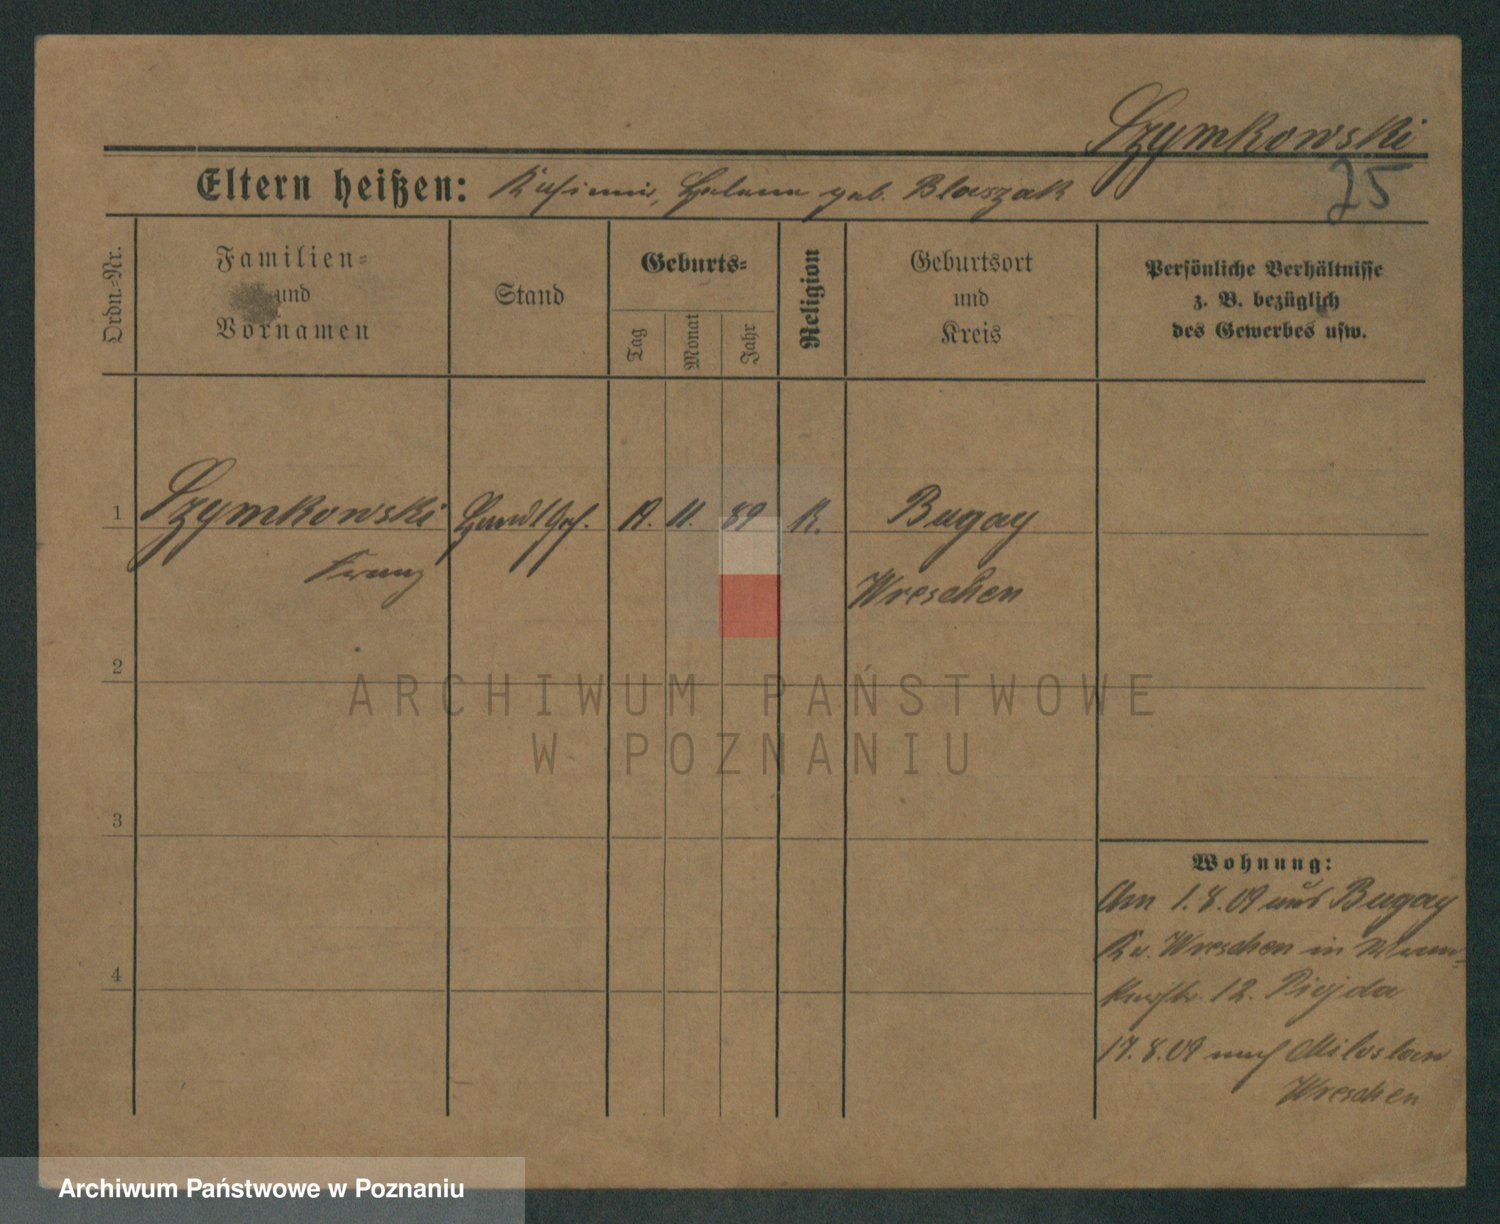 Szymkowski
75
Eltern heißen: Kasimir, Helena geb. Błaszak
Ordn.-Nr.
Familien-
und
Vornamen
Stand
Geburts-
Tag
Monat
Jahr
Religion
Geburtsort
und
Kreis
Persönliche Verhältnisse
z. B. bezüglich
des Gewerbes usw.
1 Szymkowski 11. 89 K. Bugay
Franz
Wreschen
2
ARCHIWUM PAŃSTWOWE
W POZNANIU
3
Wohnung:
Am 1.8.09 aus Bugay
Kr. Wreschen in
12.
4
17.8.09 nach Miloslaw
Wreschen
Archiwum Państwowe w Poznaniu